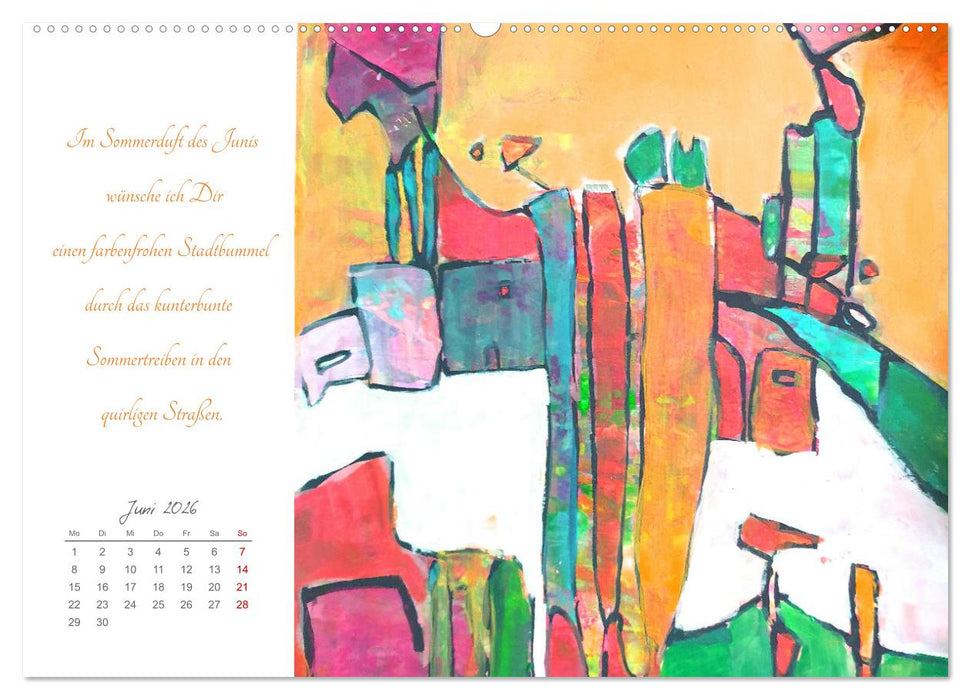 Im Sommerduft des Junis
wünsche ich Dir
einen farbenfrohen Stadtbummel
durch das kunterbunte
Sommertreiben in den
quirligen Straßen.
Juni 2026
Mo Di Mi Do Fr Sa So
1 2 3 4 5 6 7
8 9 10 11 12 13 14
15 16 17 18 19 20 21
22 23 24 25 26 27 28
29 30